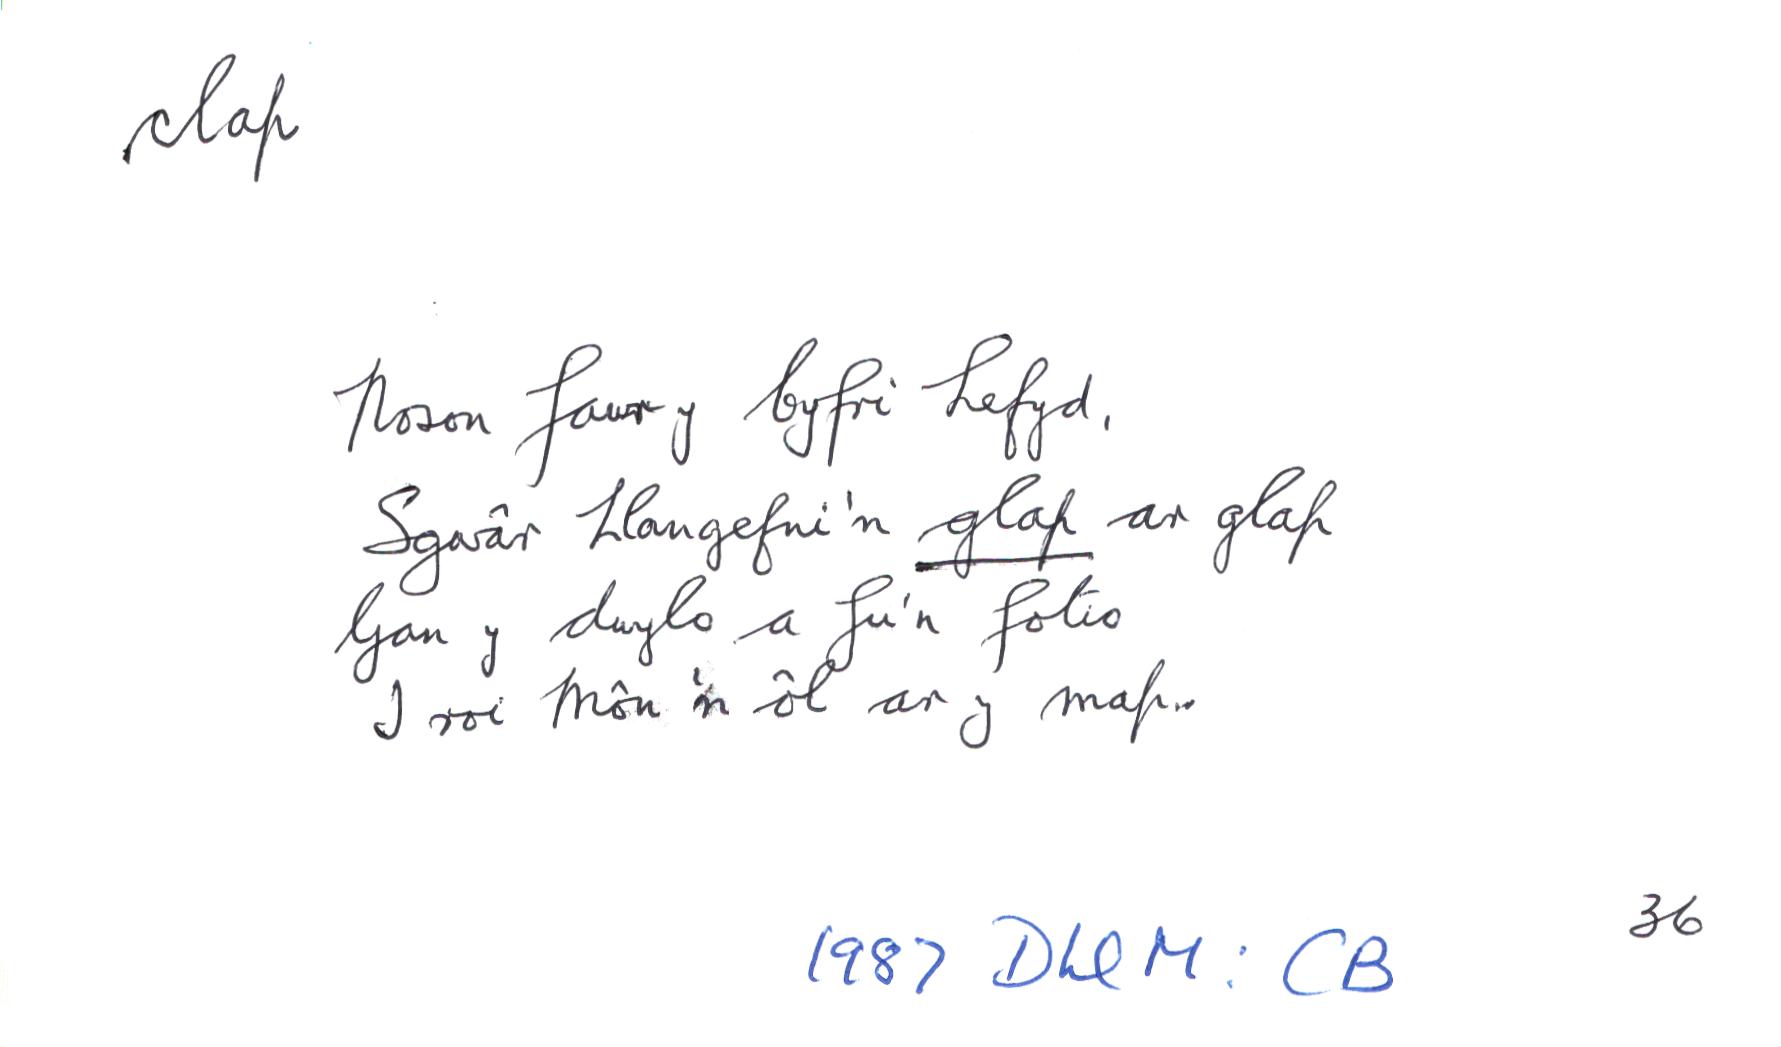 clap
Noson fawr y byfri hefyd,
Sgwâr Llangefni'n glap ar glap
Gan y dwylo a fu'n fotio
I roi Môn 'n ôl ar y map..
36
1987 DLlM: CB